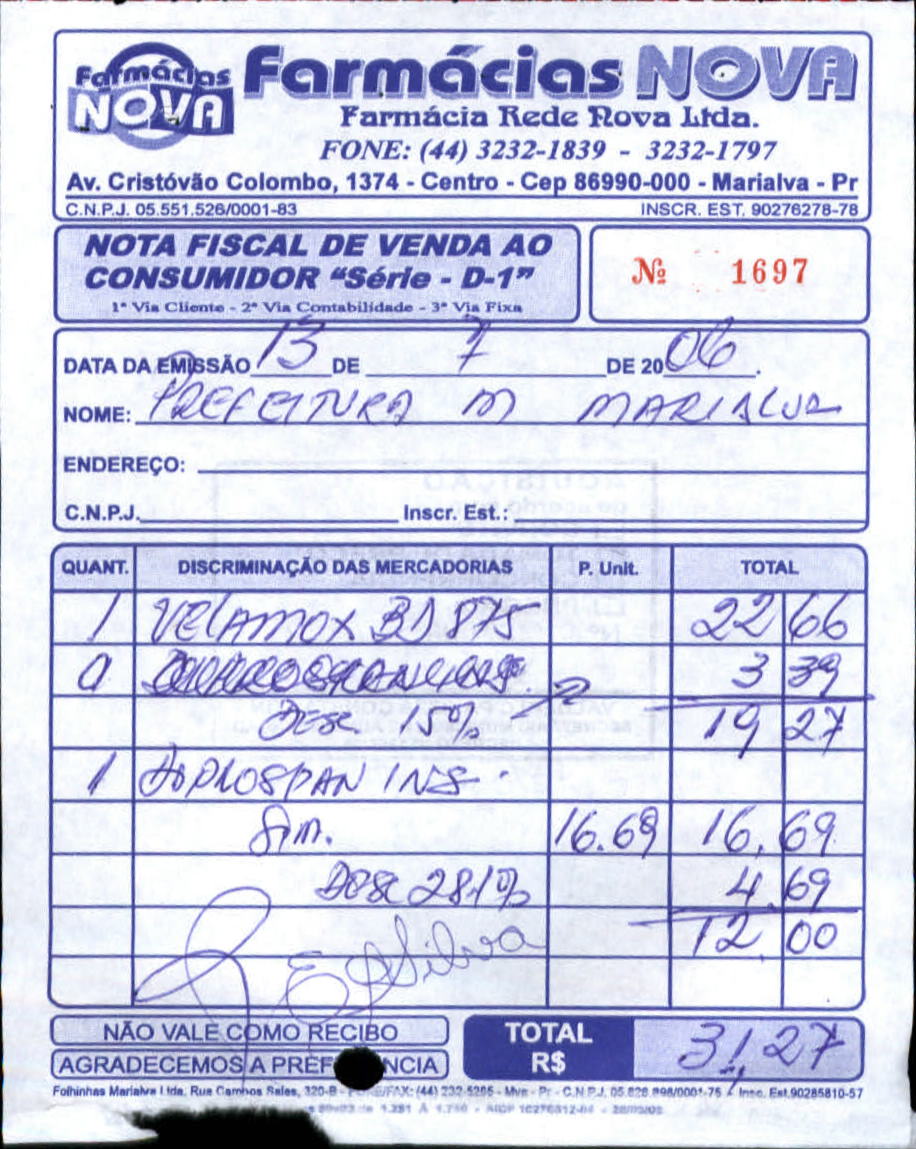 Farmácias NOVA
Farmácias NOVA
Farmácia Rede Nova Ltda.
FONE: (44) 3232-1839 - 3232-1797
Av. Cristóvão Colombo, 1374 - Centro - Cep 86990-000 - Marialva - Pr
C.N.P.J. 05.551.526/0001-83 INSCR. EST. 90276278-78
NOTA FISCAL DE VENDA AO
CONSUMIDOR “Série - D-1”
1ª Via Cliente - 2ª Via Contabilidade - 3ª Via Fixa
Nº 1697
DATA DA EMISSÃO 13 DE 7 DE 2006.
NOME: PREFEITURA M MARIALVA
ENDEREÇO:
C.N.P.J. Inscr. Est.:
QUANT. DISCRIMINAÇÃO DAS MERCADORIAS P. Unit. TOTAL
1 VELAMOX BD 875 22 66
3 39
DESC 15% 19 27
1 INS
16.69 16,69
DESC 28.1% 4,69
12,00
Silva
NÃO VALE COMO RECIBO
AGRADECEMOS A PREF NCIA
TOTAL R$ 31,27
Folhinhas Marialva Ltda, Rua Campos Sales, 320-B - FONE/FAX: (44) 232-5265 - Mva - Pr - C.N.P.J. 05.828.898/0001-75 - Insc. Est.90285810-57